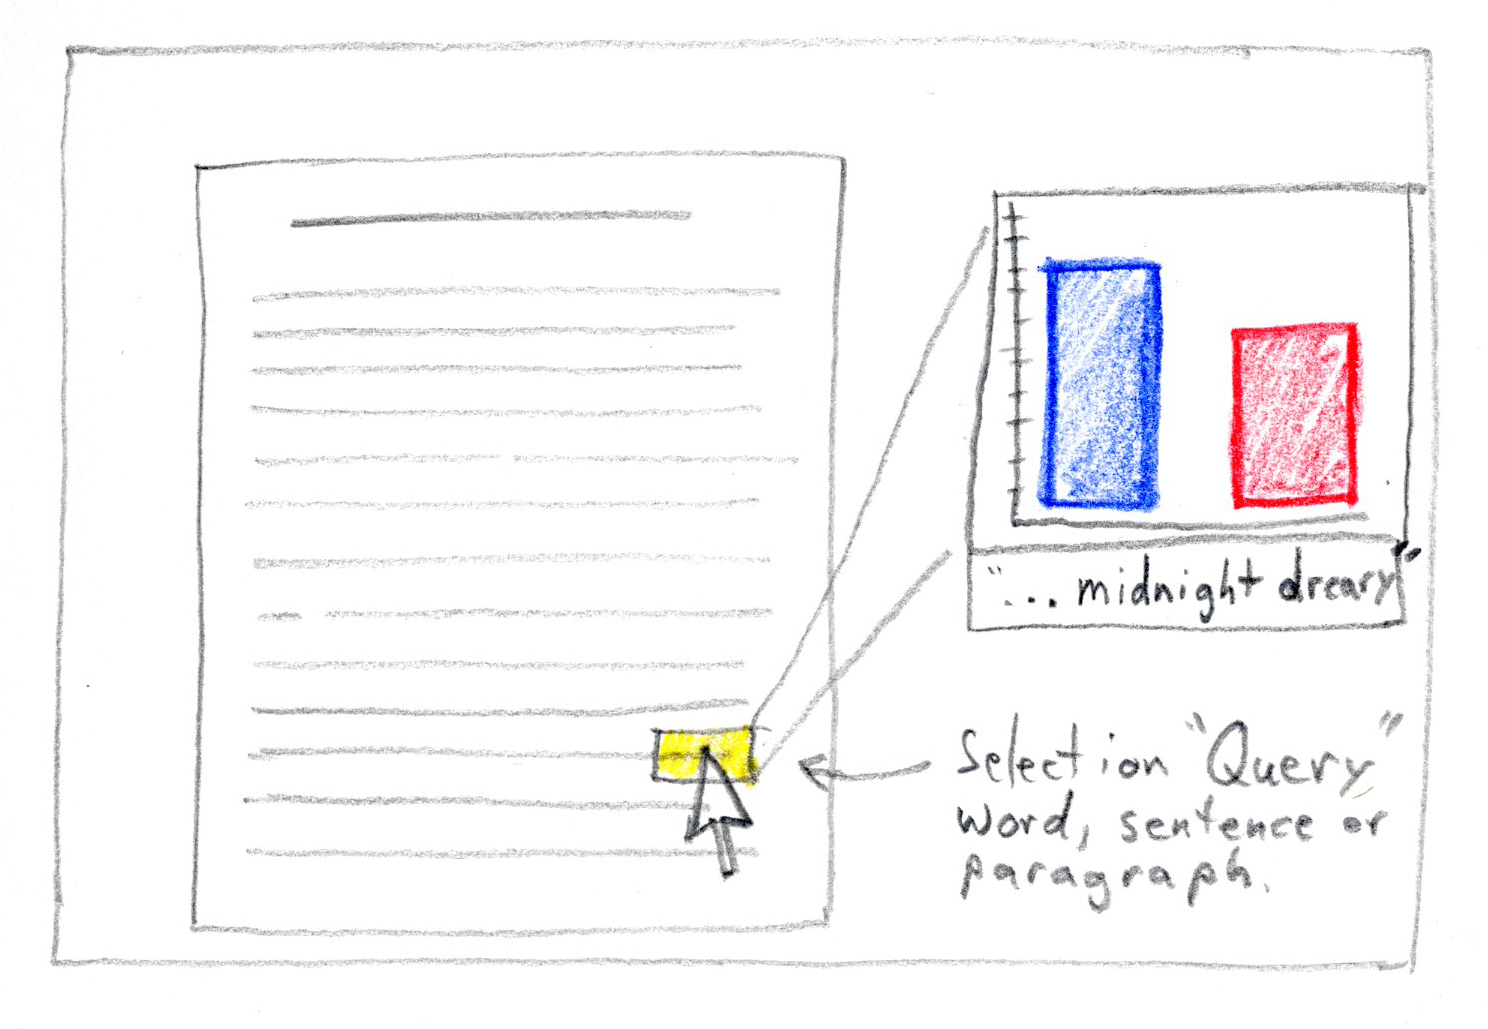 "... midnight dreary"
Selection "Query"
Word, sentence or
paragraph.